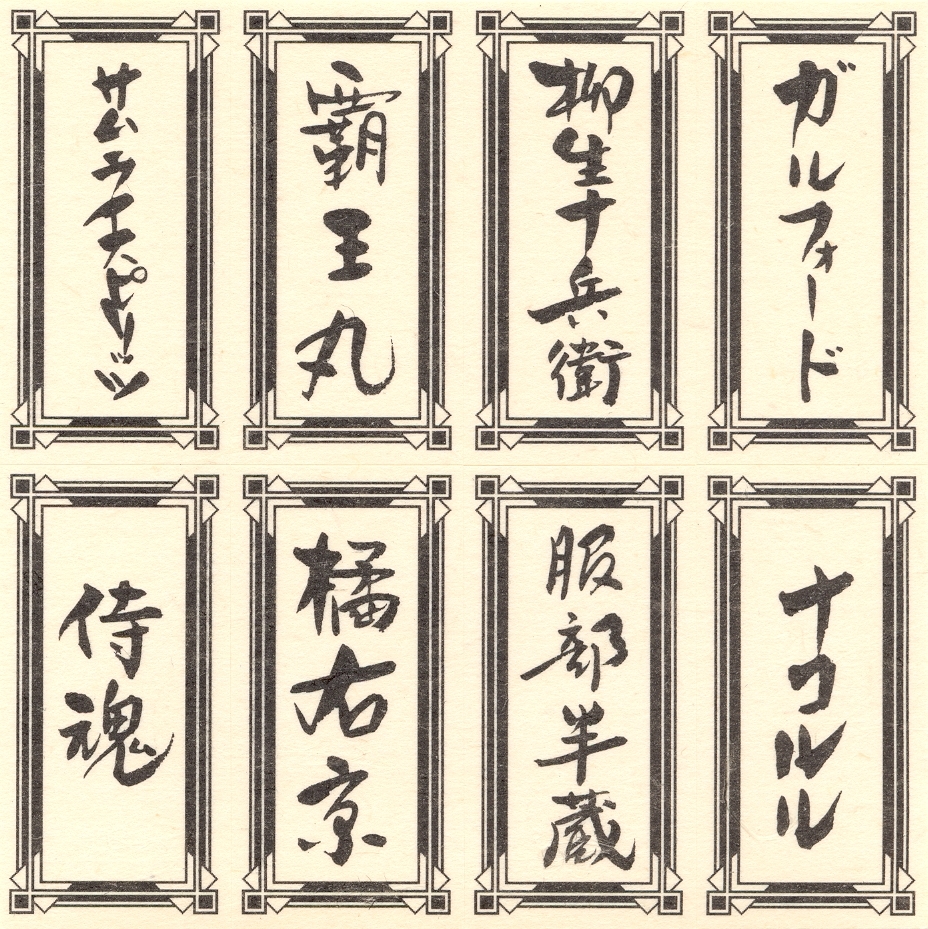 サムライスピリッツ
覇王丸
柳生十兵衛
ガルフォード
侍魂
橘右京
服部半蔵
ナコルル